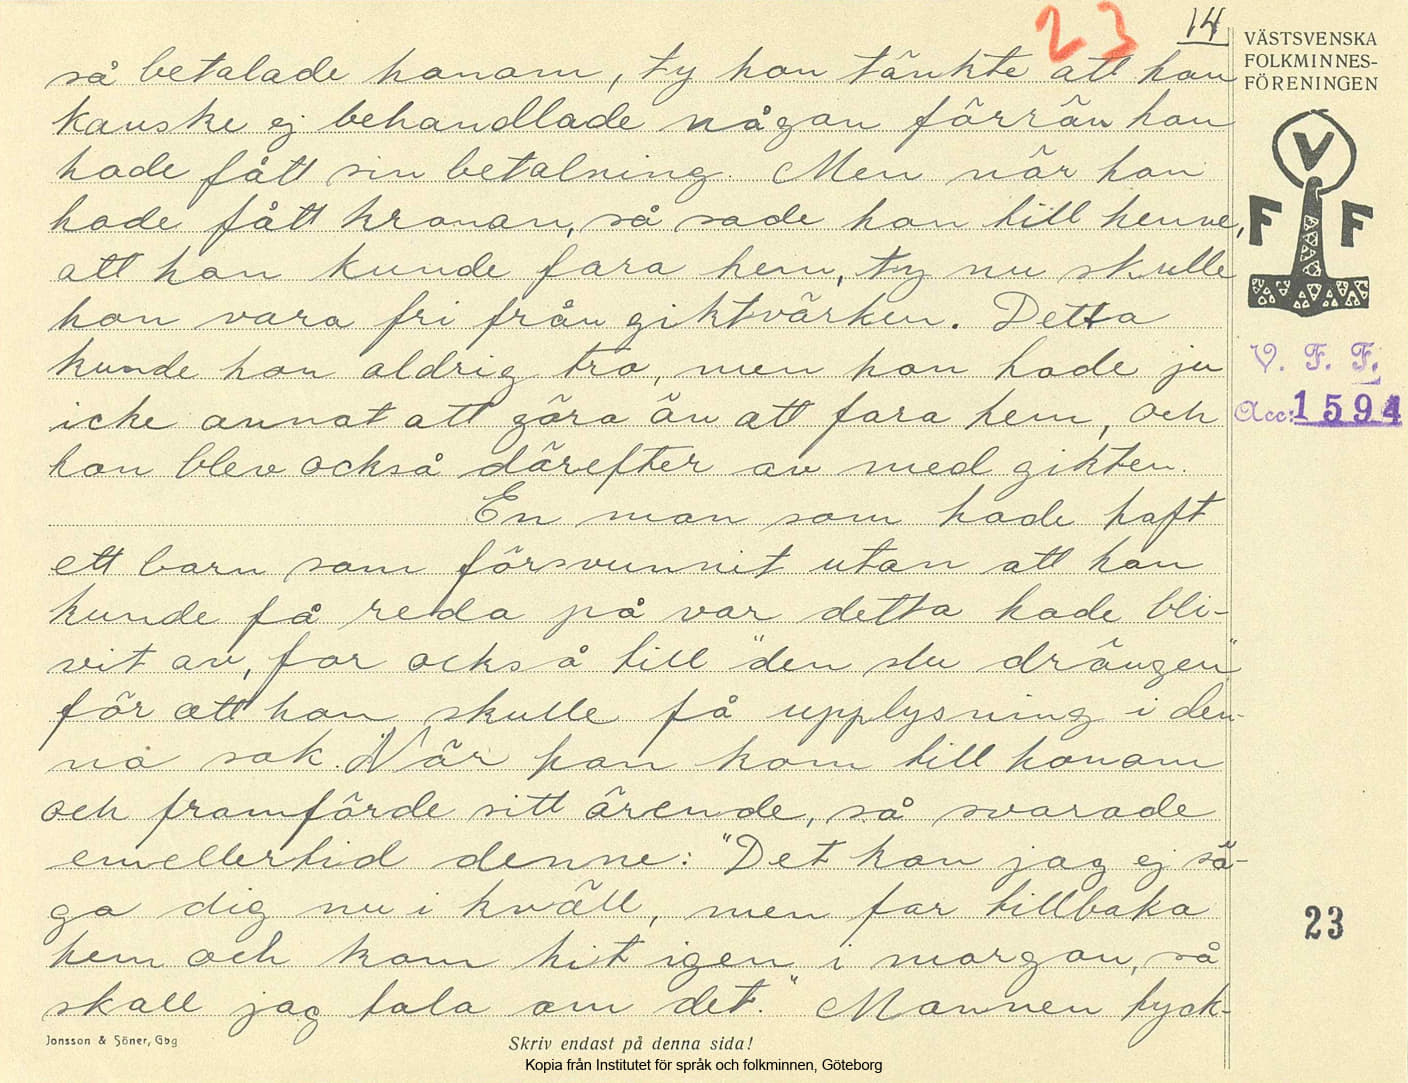 23 14
VÄSTSVENSKA
FOLKMINNES-
FÖRENINGEN
V
F F
V. F. F.
Acc: 1594
så betalade honom, ty hon tänkte att han
kanske ej behandlade någon förrän han
hade fått sin betalning. Men när han
hade fått kronan, så sade han till henne,
att hon kunde fara hem, ty nu skulle
hon vara fri från giktvärken. Detta
kunde hon aldrig tro, men hon hade ju
icke annat att göra än att fara hem, och
hon blev också därefter av med gikten.
En man som hade haft
ett barn som försvunnit utan att han
kunde få reda på var detta hade bli-
vit av, for också till "den slu drängen"
för att han skulle få upplysning i den-
na sak. När han kom till honom
och framförde sitt ärende, så svarade
emellertid denne: "Det kan jag ej sä-
ga dig nu i kväll, men far tillbaka
hem och kom hit igen i morgon, så
skall jag tala om det." Mannen tyck-
23
Jonsson & Söner, Gbg
Skriv endast på denna sida!
Kopia från Institutet för språk och folkminnen, Göteborg